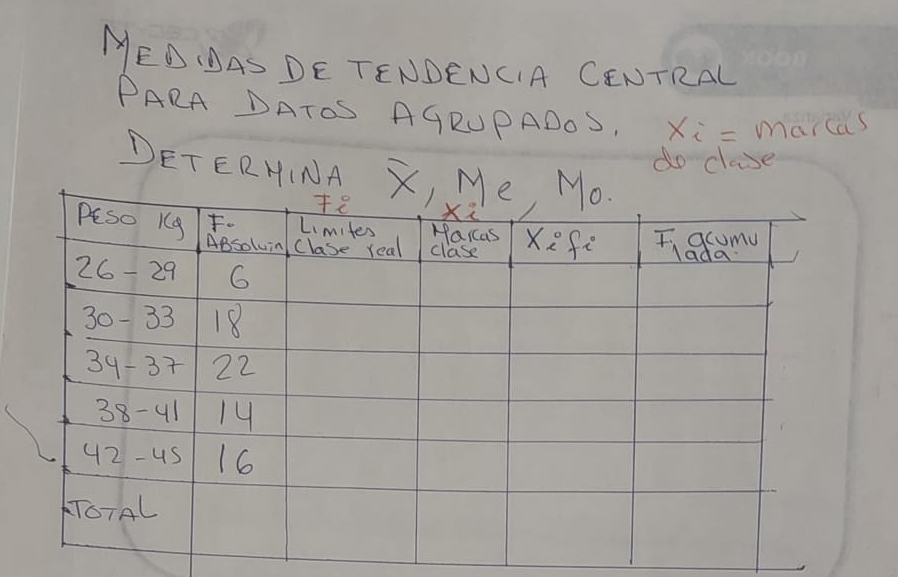 MEDIDAS DE TENDENCIA CENTRAL
PARA DATOS AGRUPADOS.
Xi = marcas
de clase
DETERMINA X̄, Me, Mo.
Fi Xi
PESO Kg F. Absoluta Limites Clase real Marcas clase Xi fi F, acumulada.
26 - 29 6
30 - 33 18
34 - 37 22
38 - 41 14
42 - 45 16
TOTAL
BOOK